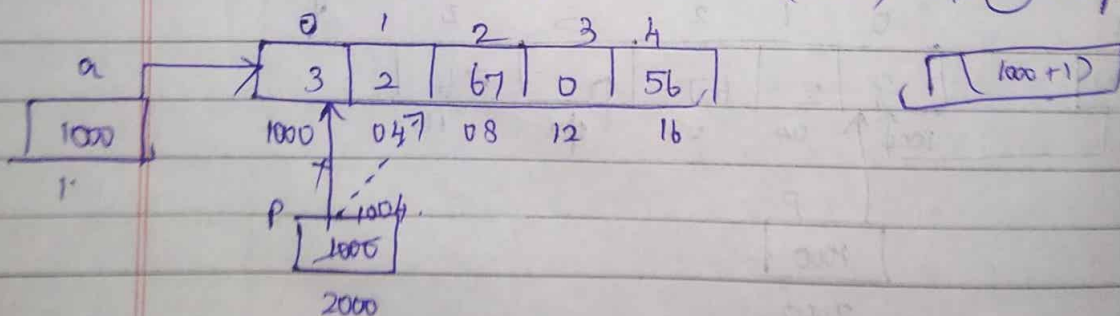 0 1 2 3 4
a 3 2 67 0 56 (1000 + 1)
1000 1000 04 08 12 16
P 1004
1000
2000